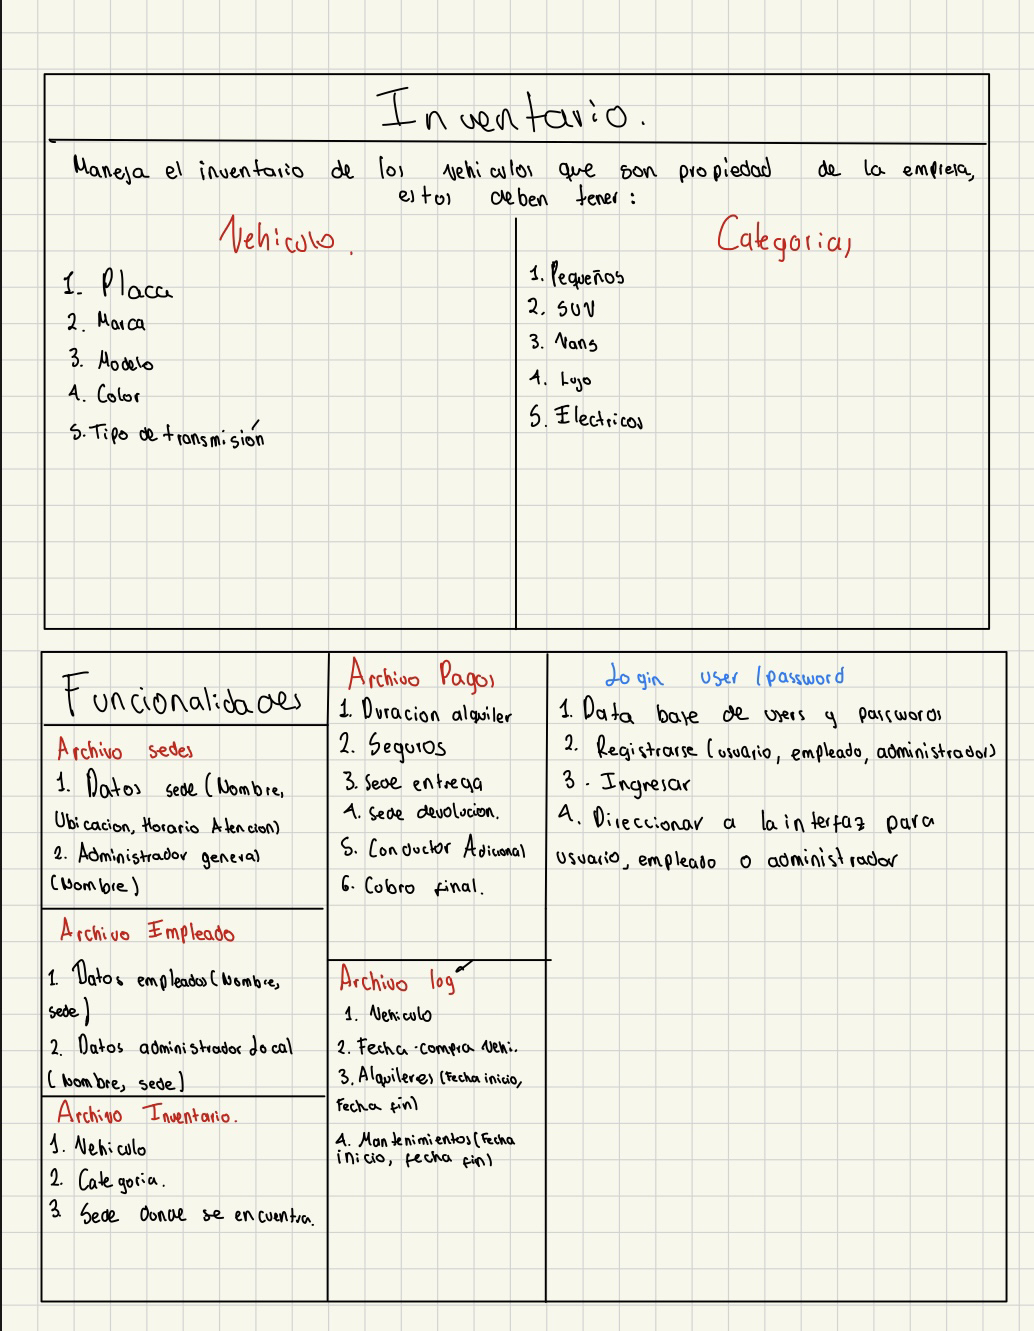 Inventario.
Maneja el inventario de los vehiculos que son propiedad de la empresa,
estos deben tener:
Vehiculo.
1. Placa
2. Marca
3. Modelo
4. Color
5. Tipo de transmisión
Categorias
1. Pequeños
2. SUV
3. Vans
4. Lujo
5. Electricos
Funcionalidades
Archivo sedes
1. Datos sede (Nombre,
Ubicacion, Horario Atencion)
2. Administrador general
(Nombre)
Archivo Empleado
1. Datos empleados (Nombre,
sede)
2. Datos administrador Local
(Nombre, sede)
Archivo Inventario.
1. Vehiculo
2. Categoria.
3. Sede donde se encuentra.
Archivo Pagos
1. Duracion alquiler
2. Seguros
3. Sede entrega
4. Sede devolucion.
5. Conductor Adicional
6. Cobro final.
Archivo log
1. Vehiculo
2. Fecha compra Vehi.
3. Alquileres (Fecha inicio,
Fecha fin)
4. Mantenimientos (Fecha
inicio, fecha fin)
Login user / password
1. Data base de users y passwords
2. Registrarse (usuario, empleado, administrador)
3. Ingresar
4. Direccionar a la interfaz para
usuario, empleado o administrador